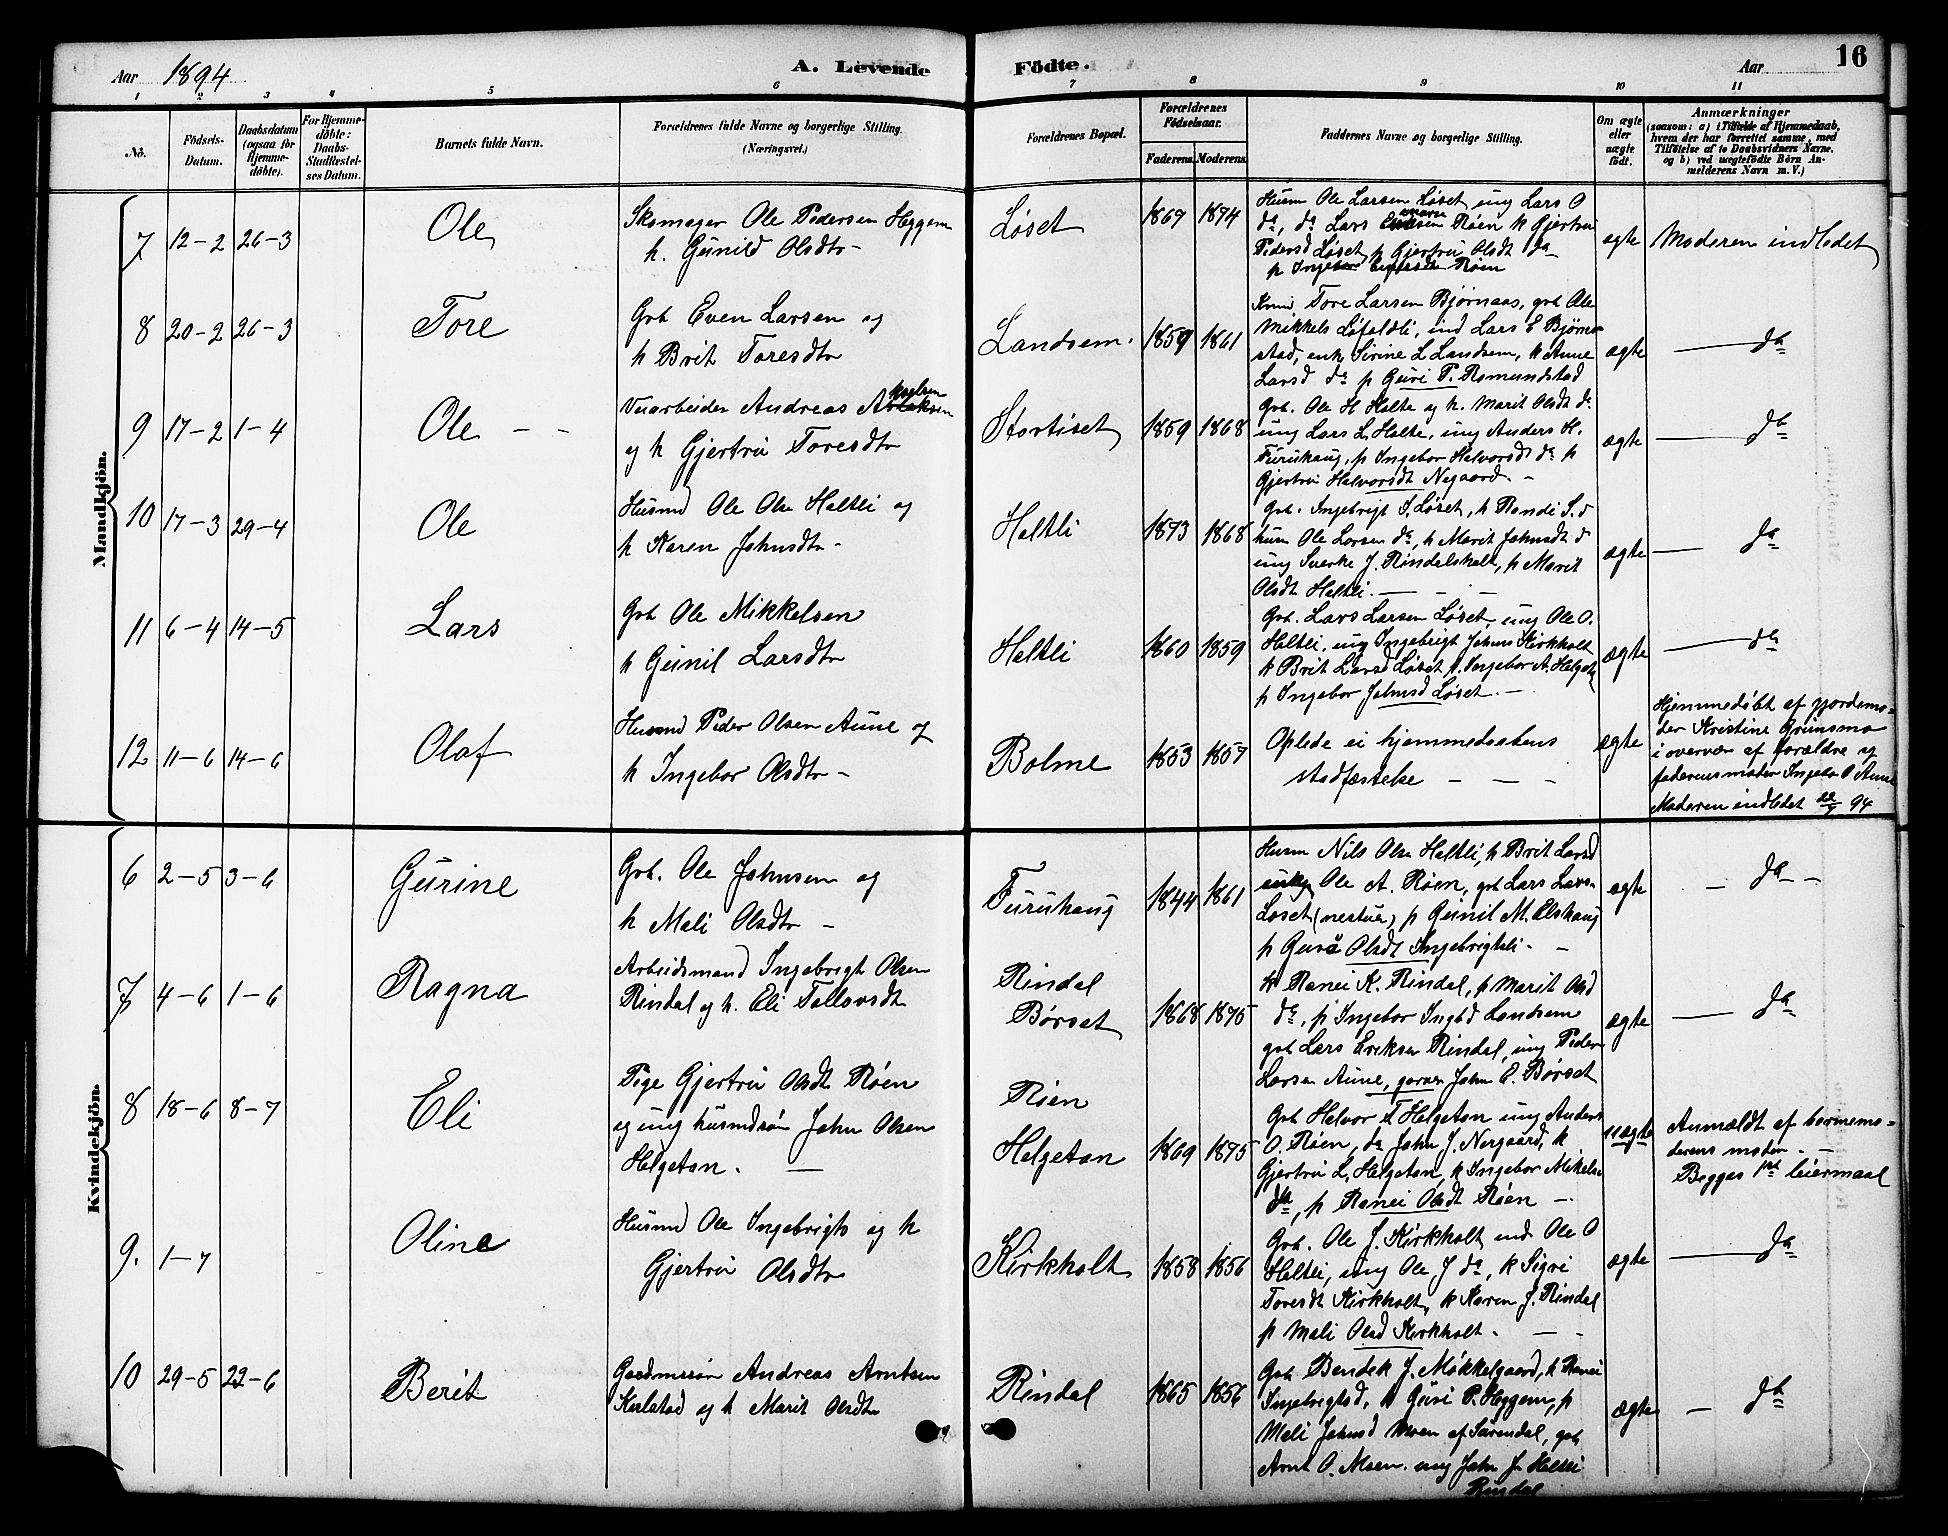 Aar 1894
A. Levende Födte.
Aar
16
1 2 3 4 5 6 7 8 9 10 11
No.
Födsels-Datum.
Daabsdatum (ogsaa for Hjemme-döbte).
For Hjemme-döbte: Daabs-Stadfæstel-ses Datum.
Barnets fulde Navn.
Forældrenes fulde Navne og borgerlige Stilling.
(Næringsvei.)
Forældrenes Bopæl.
Forældrenes Födselsaar.
Faderens. Moderens.
Faddernes Navne og borgerlige Stilling.
Om ægte eller uægte födt.
Anmærkninger
(saasom: a) i Tilfælde af Hjemmedaab,
hvem der har forrettet samme, med
Tilföielse af to Daabsvidners Navne.
og b) ved uægtefödte Börn An-
melderens Navn m. V.)
Mandkjön.
7 12-2 26-3 Ole
Skomager Ole Pedersen Heggem
h. Gunild Olsdtr -
Løset 1867 1874
Husm Ole Larsen Løset, ung Lars O
do, do Lars Røen k Gjertru
Pedersd Løset, p Gjertru Olsdt do
p Ingebor Røen
ægte Moderen indledet
8 20-2 26-3 Tore
Grb Even Larsen og
h Brit Toresdtr
Landsem. 1859 1861
Tore Larsen Bjørnaas, grb Ole
Mikkels Lifaldli, ind Lars E Bjørn-
stad, enk Sirine L Landsem, k Anne
Larsd do p Guri T. Romundstad
ægte — do
9 17-2 1-4 Ole - -
Veiarbeider Andreas
og h Gjertru Toresdtr
Stortiset 1859 1868
Grb. Ole H Holte og h. Marit Olsdt do
ung Lars L Holte, ung Anders H.
Furuhaug, p Ingebor Halvorsd do p
Gjertru Halvorsdt Negaard. -
ægte — do
10 17-3 29-4 Ole
Husmd Ole Olsn Haltli og
h Karen Johnsdtr -
Haltli 1873 1868
Grb. Ingebrigt S. Løset, k Randi S. d
hum Ole Larsen do, k Marit Johnsdt d
ung Sverke J. Rindalsholt, p Marit
Olsdt Haltli. - - -
ægte — do
11 6-4 14-5 Lars
Grb Ole Mikkelsen
h Gunil Larsdtr
Haltli 1860 1859
Grb. Lars Larsen Løset, ung Ole O.
Haltli, ung Ingebrigt Johns Kirkholt
k Brit Larsd Løset p. Ingebor A. Helget
p Ingebor Johnsd Løset. -
ægte — do
12 11-6 14-6 Olaf
Husmd Peder Olsen Aune og
h Ingebor Olsdtr -
Bolme 1853 1857
Oplede ei hjemmedaabens
stadfæstelse - - -
ægte
Hjemmedøbt af gjordemo-
der Kristine Grinsmo
i overvær af forældre og
faderens moder Ingebor O Aune
Moderen indledet 22/7 94
Kvindekjön.
6 2-5 3-6 Gurine
Grb. Ole Johnsen og
h Mali Olsdtr -
Furuhaug 1844 1861
Husm Nils Olsn Haltli, k Brit Larsd
Ole A. Røen, grb Lars Lars.
Løset (nestua) p Gunil M. Elshaug
p Gurå Olsdt Ingebrigtsli. -
ægte - do -
7 4-6 1-6 Ragna
Arbeidsmand Ingebrigt Olsen
Rindal og h. Eli Tollovsdt
Rindal
Børset 1868 1875
k Ranei K. Rindal, p Marit Olsd
do, p Ingebor Ingbd Landsem
grb Lars Eriksen Rindal, ung Peder
Larsen Aune, garver John E. Børset
ægte — do
8 18-6 8-7 Eli
Pige Gjertru Olsdt Røen
og ung husmdsøn John Olsen
Helgetan. —
Røen
Helgetan 1869 1875
Grb Halvor T Helgetan ung Anders
O. Røen, do John J. Nergaard, k
Gjertru L. Helgetan, k Ingebor Mikelsn
do, p Ranei Olsdt Røen -
uægte
Anmældt af barnemo-
derens moder. -
Begges 1ste leiermaal
9. 1-7 Oline
Husmd Ole Ingebrigts og h
Gjertru Olsdtr
Kirkholt 1858 1856
Grb. Ole J. Kirkholt ind Ole O
Haltli, ung Ole J do, k Sigri
Toresdt Kirkholt, k Karen J. Rindal
p Mali Olsd Kirkholt. - -
ægte — do
10 29-5 22-6 Berit
Gaardmssøn Andreas Arntsen
Karlstad og h Marit Olsdtr
Rindal 1865 1856
Grb Bendek J. Møkkelgaard, k Ranei
Ingebrigtsd, k Guri P. Heggem, p
Mali Johnsd Moen af Surendal, grb
Arnt O. Moen. ung John J. Haltli
Rindal
ægte - do